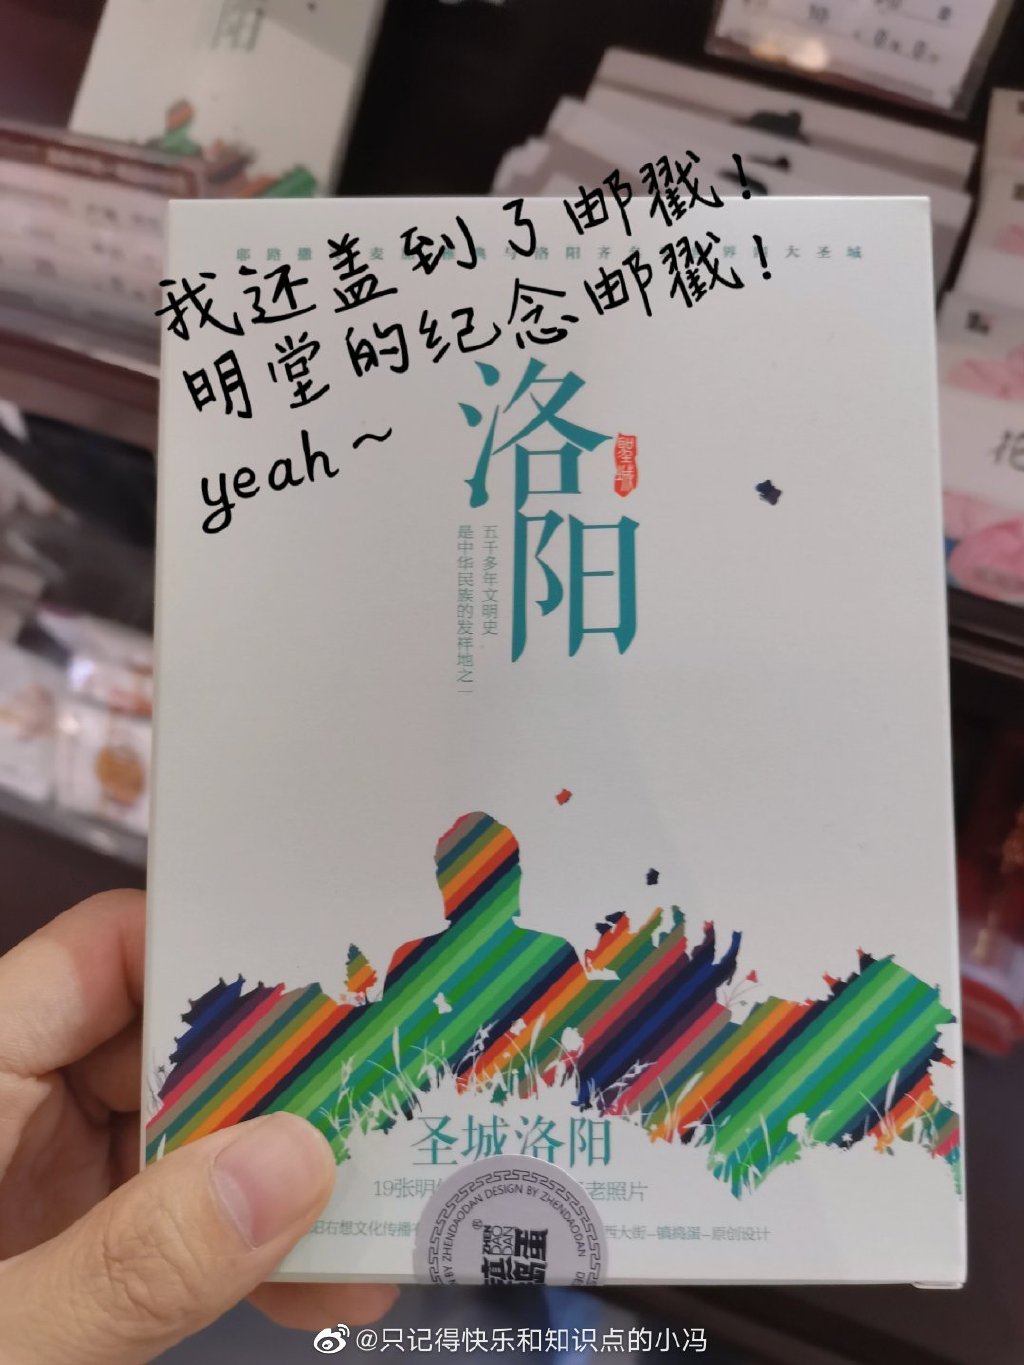 我还盖到了邮戳！
明堂的纪念邮戳！
yeah～
洛阳
聖城
五千多年文明史
是中华民族的发祥地之一
圣城洛阳
19张明
老照片
阳右想文化传播
西大街–镇捣蛋–原创设计
DESIGN BY ZHENDAODAN
ZHEN DAO DAN
镇捣蛋
@只记得快乐和知识点的小冯